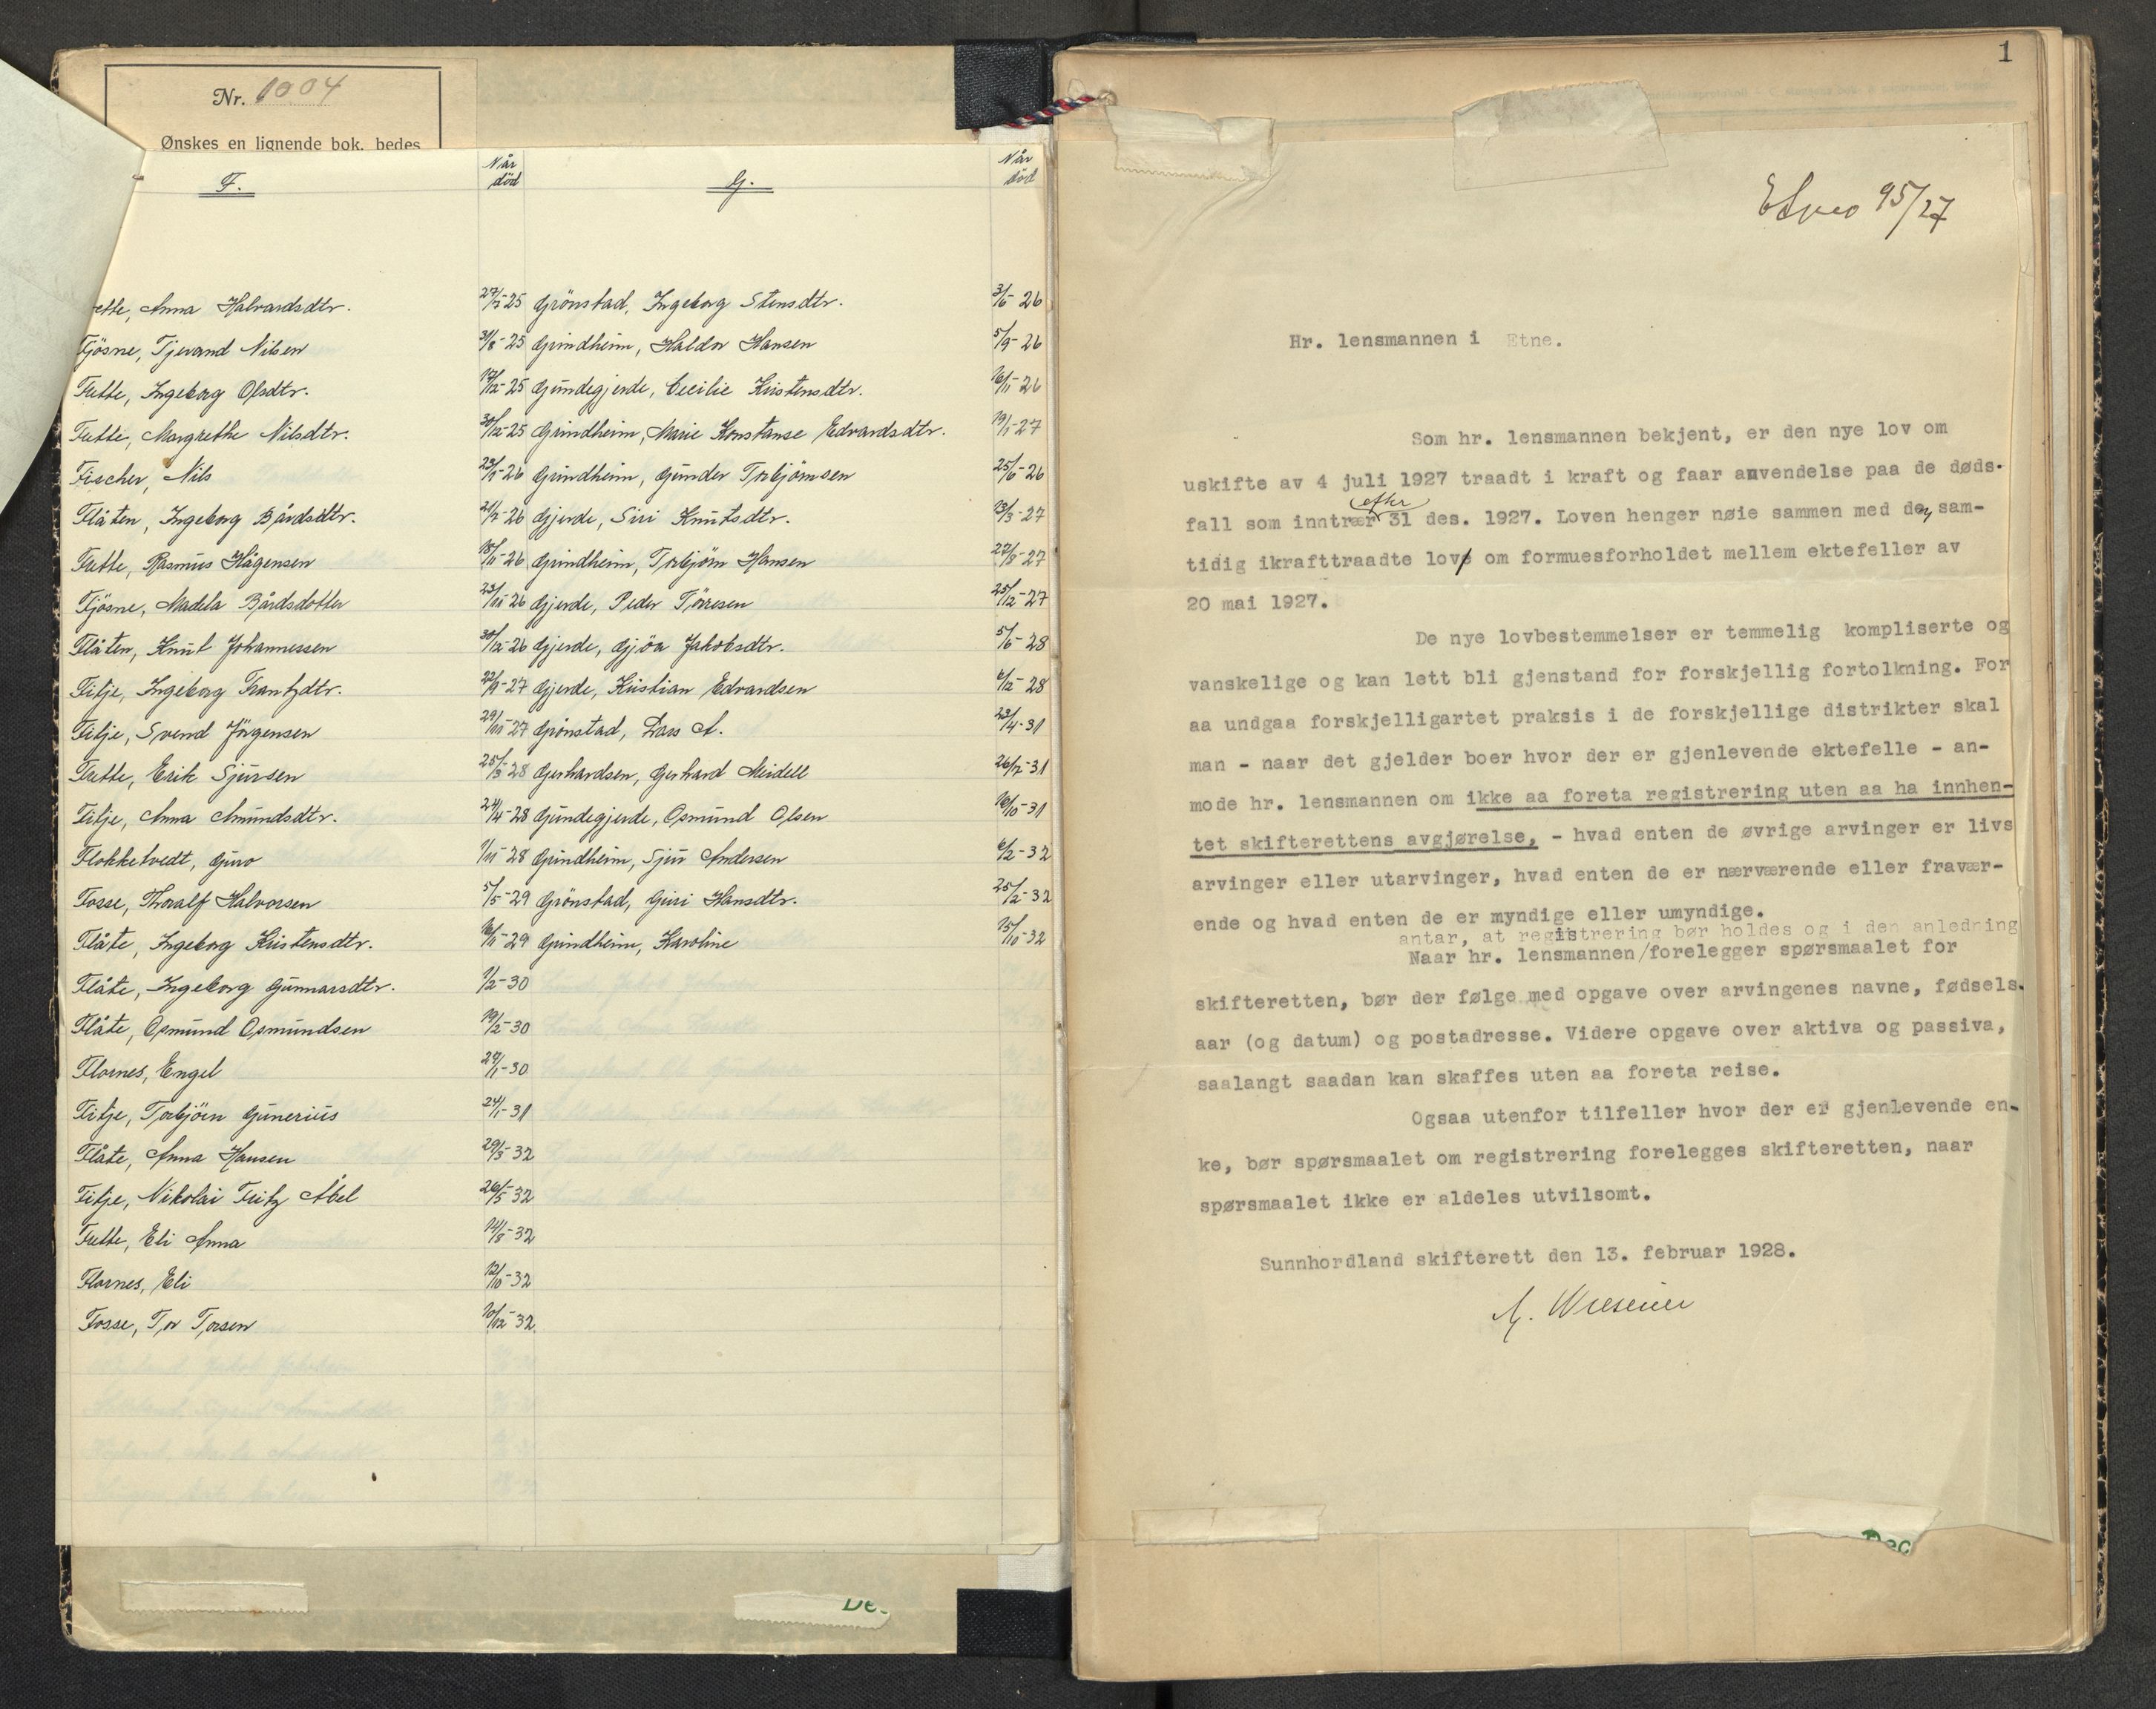 Nr. 1004
Ønskes en lignende bok, bedes
F.
Når død
Anna Halvardsdtr. 27/7-25
Fjösne, Tjerand Nilsen 31/8-25
Frette, Ingeborg Olsdtr. 17/12-25
Frette, Margrethe Nilsdtr. 30/12-25
Fischer, Nils 23/1-26
Flåten, Ingeborg Bårdsdtr. 21/7-26
Frette, Rasmus Hågensen 18/11-26
Fjösne, Madela Bårdsdotter 23/11-26
Flåten, Knut Johannessen 30/12-26
Fitje, Ingeborg Frantzdtr. 22/9-27
Fitje, Svend Jörgensen 29/10-27
Frette, Erik Sjursen 25/3-28
Fitje, Anna Amundsdtr. 24/4-28
Flokketvedt, Guro 1/11-28
Fosse, Thoralf Halvorsen 5/5-29
Flåte, Ingeborg Kristensdtr. 16/11-29
Flåte, Ingeborg Gunnarsdtr. 1/2-30
Flåte, Osmund Osmundsen 19/2-30
Flornes, Engel 29/1-30
Fitje, Torbjörn Gunerius 24/1-31
Flåte, Anna Hansen 29/3-32
Fitje, Nikolai Fritz Abel 26/5-32
Frette, Eli Anna 14/8-32
Flornes, Eli 12/10-32
Fosse, Tor Torsen 10/12-32
G.
Når död
Grönstad, Ingeborg Stensdtr. 3/6-26
Grindheim, Haldor Hansen 5/9-26
Grindegjerde, Cecilie Kristensdtr. 16/11-26
Grindheim, Marie Konstanse Edvardsdtr. 19/1-27
Grindheim, Gunder Torbjörnsen 25/6-26
Gjerde, Siri Knutsdtr. 13/3-27
Grindheim, Torbjörn Hansen 27/8-27
Gjerde, Peder Törresen 25/12-27
Gjerde, Gjöa Jakobsdtr. 5/6-28
Gjerde, Kristian Edvardsen 6/12-28
Grönstad, Lars A. 23/4-31
Gerhardsen, Gerhard Meidell 26/7-31
Grindegjerde, Osmund Olsen 16/10-31
Grindheim, Sjur Andersen 6/2-32
Grönstad, Guri Hansdtr. 25/2-32
Grindheim, Karoline 15/10-32
De
1
Etne 95/27
Hr. lensmannen i Etne.
Som hr. lensmannen bekjent, er den nye lov om
uskifte av 4 juli 1927 traadt i kraft og faar anvendelse paa de døds-
efter
fall som inntrær 31 des. 1927. Loven henger nøie sammen med den sam-
tidig ikrafttraadte lov om formuesforholdet mellem ektefeller av
20 mai 1927.
De nye lovbestemmelser er temmelig kompliserte og
vanskelige og kan lett bli gjenstand for forskjellig fortolkning. For
aa undgaa forskjelligartet praksis i de forskjellige distrikter skal
man - naar det gjelder boer hvor der er gjenlevende ektefelle - an-
mode hr. lensmannen om ikke aa foreta registrering uten aa ha innhen-
tet skifterettens avgjørelse, - hvad enten de øvrige arvinger er livs
arvinger eller utarvinger, hvad enten de er nærværende eller fravær-
ende og hvad enten de er myndige eller umyndige.
antar, at registrering bør holdes og i den anledning
Naar hr. lensmannen/forelegger spørsmaalet for
skifteretten, bør der følge med opgave over arvingenes navne, fødsels-
aar (og datum) og postadresse. Videre opgave over aktiva og passiva,
saalangt saadan kan skaffes uten aa foreta reise.
Ogsaa utenfor tilfeller hvor der er gjenlevende en-
ke, bør spørsmaalet om registrering forelegges skifteretten, naar
spørsmaalet ikke er aldeles utvilsomt.
Sunnhordland skifterett den 13. februar 1928.
Dec